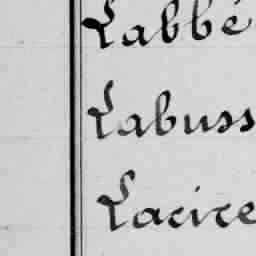 Labbé
Labuss
Lacire